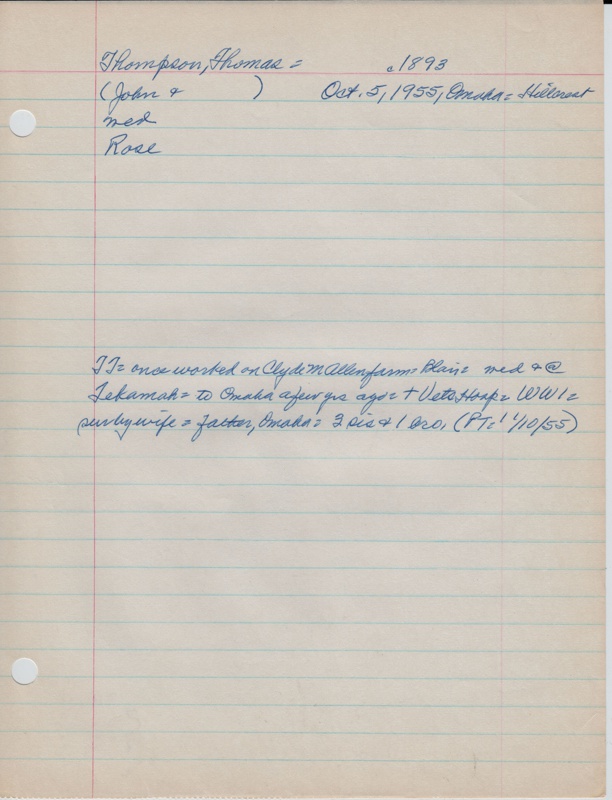 Thompson, Thomas = c1893
(John & ) Oct. 5, 1955, Omaha = Hillcrest
med
Rose
TT = once worked on Clyde M Allen farm = Blair = med & @
Tekamah = to Omaha a few yrs ago = + Vets Hosp = WW1 =
sur by wife = father, Omaha = 3 sis & 1 bro. (PT = 11/10/55)